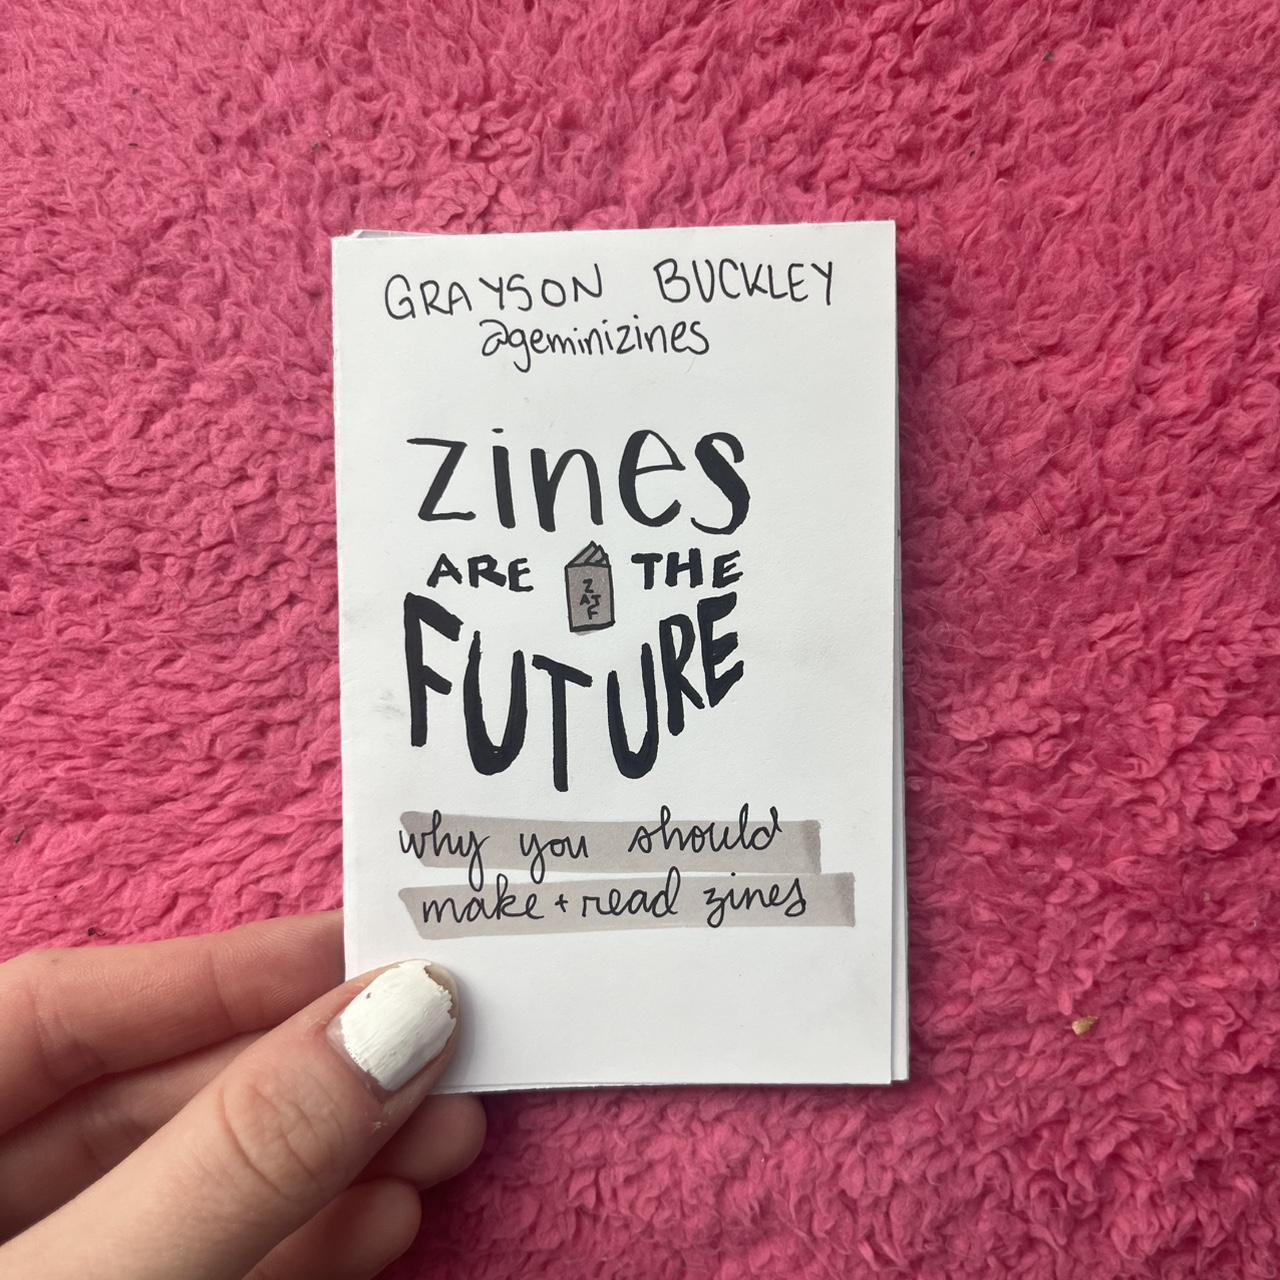 GRAYSON BUCKLEY
@geminizines
zines
ARE THE
Z
ATF
FUTURE
why you should
make + read zines